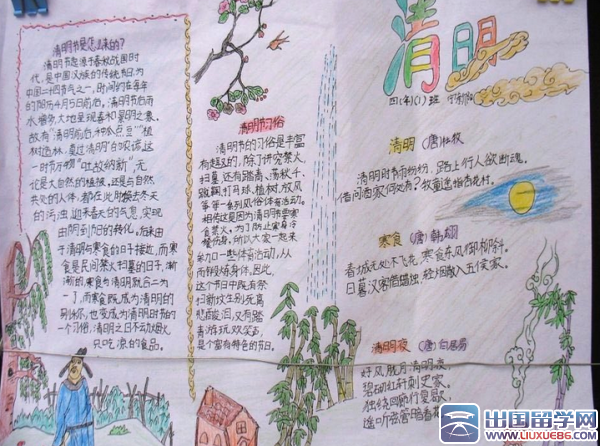 清明节是怎么来的?
清明节起源于春秋战国时
代,是中国汉族的传统节日,为
中国二十四节气之一,时间约在每年
的阳历4月5日前后。清明节后雨
水增多,大地呈现春和景明之象。
故有"清明前后,种瓜点豆""植
树造林,莫过清明"的农谚。这
一时节万物"吐故纳新",无
论是大自然的植被,还是与自然
共处的人体,都在此时换去冬天
的污浊,迎来春天的气息,实现
由阴到阳的转化。后来由
于清明与寒食的日子接近,而寒
食是民间禁火扫墓的日子,渐
渐的,寒食与清明就合二为
一了,而寒食既成为清明的
别称,也变成为清明时节的
一个习俗,清明之日不动烟火,
只吃凉的食品。
清明节习俗
清明节的习俗是丰富
有趣的,除了讲究禁火、
扫墓,还有踏青、荡秋千、
蹴鞠、打马球、植树、放风
筝等一系列风俗体育活动。
相传这是因为清明节要寒
食禁火,为了防止寒食冷
餐伤身,所以大家一起来
参加一些体育活动,从
而锻炼身体,因此,
这个节日中既有祭
扫新坟生别死离
悲酸泪,又有踏
青游玩欢笑声,
是个富有特色的节日。
清明
四(年)(1)班
清明 (唐)杜牧
清明时节雨纷纷,路上行人欲断魂。
借问酒家何处有?牧童遥指杏花村。
寒食 (唐)韩翃
春城无处不飞花,寒食东风御柳斜。
日暮汉宫传蜡烛,轻烟散入五侯家。
清明夜 (唐)白居易
好风胧月清明夜,
碧砌红轩刺史家。
独绕回廊行复歇,
遥听弦管暗看花
出国留学网
www.liuxue86.com